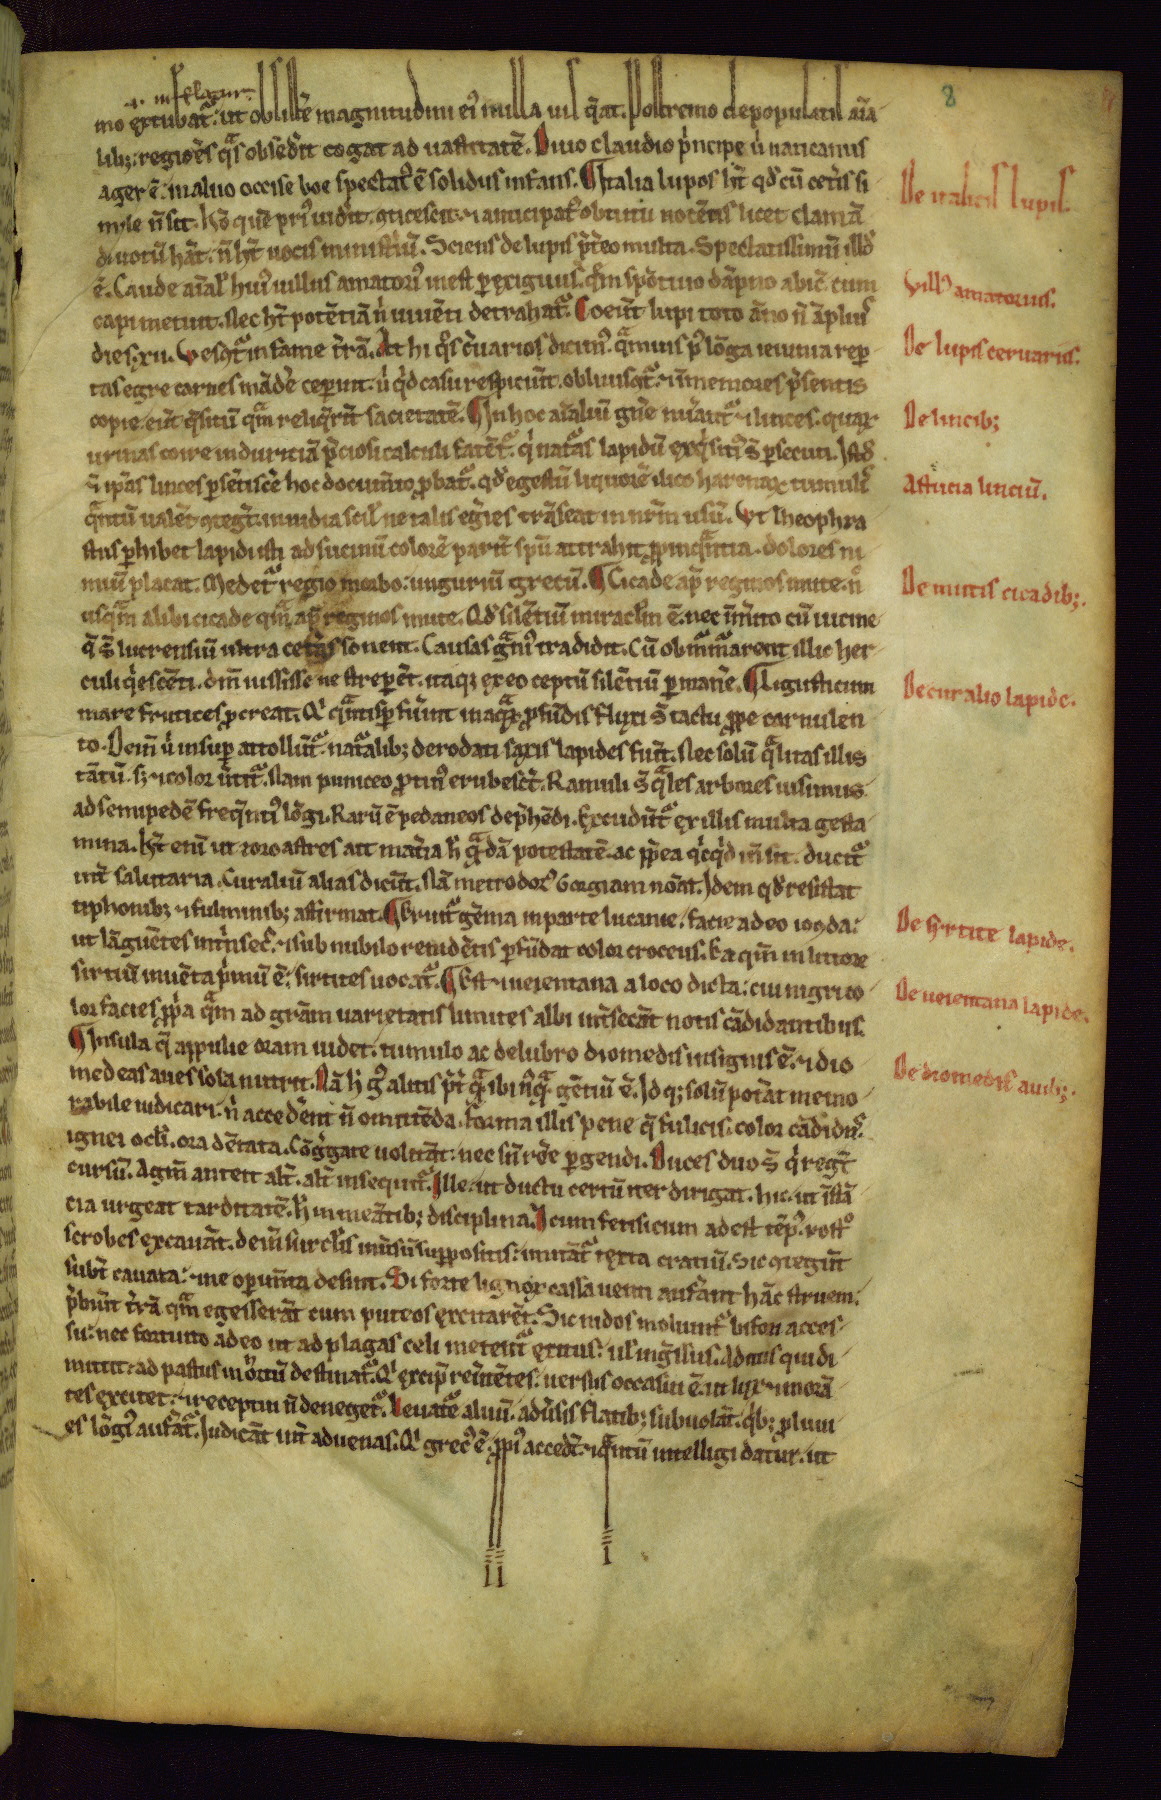 .i. inflatur.
mo extubat᷑: ut obsistẽ magnitudini ei᷒ nulla uis q̃at. Postremo depopulatis aĩa
lib; regiões q̃s obsedit cogat ad uastitatẽ. Diuo claudio p̃ncipe ũ uaticanus
ager ẽ: in aluo occise boe spectat᷒ ẽ solidus infans. ¶ Italia lupos ht̃ qd̃ cũ cetis si
mile ñ sit. hõ quẽ p̃i᷒ uidit. oticescit. ⁊ anticipat᷒ obtutu nocẽtis licet clamã
di uotũ hãt. ñ ht̃ uocis ministiũ. Sciens de lupis p̃teo multa. Spectatissimũ illd̃
ẽ. Caude aĩal᷑ hui᷒ uillus amatori᷒ inest p̱exiguus. q̃m spõtiuo dãpno abic̃ cum
capi metuit. Nec ht̃ potẽtiã ñ uiuẽti detrahat᷑. Coeũt lupi toto ãno ñ ãpli᷒
dies .xii. Vesq̃t᷑ in fame t̃rã. At hi q̃s c̃uarios dicim᷒. q̃muis p᷒ lõga ieiunia rep̱
tas egre carnes mãde᷑ cep̱unt. ũ q̃d casu respiciũt. obliuisc̃t᷑. ⁊ ĩmemores p̃sentis
copie. eũt q̃situ q̃m reliq̃rĩt sacietatẽ. ¶ In hoc aĩaliũ gñe nũãt᷑ ⁊ linces. quaꝝ
urinas coire in duriciã p̃ciosi calculi fatẽt᷑. q̃ nat᷑as lapidũ exq̃siti᷒ s̃ p̱secuti. Istd̃
⁊ ip̃as linces p̱sẽtiscẽ hoc docum̃to p̱bat᷑. qd̃ egestũ liquorẽ ilico harenaꝝ cumulis
q̃ntũ ualẽt otegũt. inuidia scil᷑ ne talis egẽies trãseat in nr̃m usũ. Vt theophra
stus p̱hibet lapidi isti ad sucinũ colorẽ parit̃ sp̃u attrahit p̱pinq̃ntia. dolores re
niũ placat. Medet᷑ regio morbo: unguriũ grecũ. ¶ Cicade ap̃ reginos mute. n̊
usq̃m alibi cicade q̃m ap̃ reginos mute. Qd̃ silẽtiũ miraclm̃ ẽ. nec ĩmẽito cũ uicine
q̃ s̃ lucrensiũ ultra cetẽs sonent. Causas g̃ni᷒ tradidit. Cũ obm̃m᷑arent illic her
culi q̃escẽti. dm̃ iussisse ne strepeẽt. itaq; ex eo ceptũ silẽtiũ p̱mañe. ¶ Ligusticum
mare frutices p̱creat. Qi q̃ntisp̱ fũint in aq̃ꝝ p̱fũdis fluxi s̃ tactu p̱pe carnulen
to. Deĩ ũ in sup̱ attollũt᷑. nat᷑alib; derogati saxis lapides fiũt. Nec solũ q̃litas illis
tãtũ. s; ⁊ color ũtit᷑. Nam puniceo p̱tin᷒ erubescũt. Ramuli s̃ q̃les arbores uisimus
ad semipedẽ freq̃nti᷒ lõgi. Rarũ ẽ pedaneos dep̃hẽdi. Excudũt᷑ ex illis multa gesta
mina. ht̃ enĩ ut zoroastres ait mat̃ia h̃ q̃dã potestatẽ. ac p̱p̃ea q̃cq̃d inẽ sit. ducit᷑
int̃ salutaria. Curaliũ alias dicũt. Nã metrodor᷒ Gorgiam noĩat. Idem qd̃ resistat
tiphonib; ⁊ fulminib; affirmat. ¶ Eruit᷑ gẽma in parte lucanie. facie adeo iocũda:
ut lãguẽtes int̃nsec᷒. ⁊ sub nubilo renidẽtis p̱fũdat color croceus. Ea q̃m in littore
sirtiũ inuẽta p̃mũ ẽ: sirtites uocat᷑. ¶ Est ⁊ ueientana a loco dicta: cui nigri co
lor facies p̱p̃a q̃m ad grãm uarietatis limites albi int̃secãt notis cãdidantibus.
¶ Insula q̃ appulie oram uidet. tumulo ac delubro diomedis insignis ẽ. ⁊ dio
medeas aues sola nutrit. Nã h᷑ g᷒ alitis p̃t̃ q̃ ibi ñq̃ gẽtiũ ẽ. Idq; solũ potãt memo
rabile iudicari. ñ accedẽnt ñ omittẽda. Forma illis pene q̃ fulicis. color cãdid᷒.
ignei ocli᷑. ora dẽtata. Cõg̃gate uolitãt. nec sñ r̃õe p̱gendi. Duces duo s̃ q̃ regũt
cursũ. Agm̃ anteit alt̃. alt̃ insequit᷑. Ille. ut ductu certũ iter dirigat. hic. ut ĩstã
cia urgeat tarditatẽ. h᷑ in meãtib; disciplina. Cum fetificum adest tẽp᷒. rost᷒
scrobes excauãt. deĩ surclis inũsũ supp̱positis: imitãt᷑ texta cratiũ. Sic otegũt
subt̃ cauata: ⁊ ne op̱im̃ta desint. Si forte lignoꝝ cassa uenti aufãint hãc struem:
p̃bũt t̃rã q̃m egesserãt cum puteos excitarẽt. Sic nidos moliunt᷑ bifori acces
su: nec fortuito adeo ut ad plagas celi metent᷑ exitus: ul᷑ ing̃ssus. Aditus qui di
mittit ad pastus in ortũ destinat᷑. Q̃ excip̃ reũtẽtes: uersus occasũ ẽ. ut lux ⁊ morã
tes excitet. ⁊ receptui ñ deneget᷑. Leuatẽ aluũ. adũsis flatib; subuolãt. q̃b; p̱luui
es lõgi᷒ aufãt᷑. Iudicãt int̃ aduenas. Q̃ grec᷒ ẽ p̱pi᷒ accedũt. ⁊ q̃ntũ intelligi datur. ut
II
I
8
De italicis lupis.
Vill᷒ amatorius.
De lupis ceruariis.
De lincib;
Astucia linciũ.
De mutis cicadib;.
De curalio lapide.
De syrtite lapide.
De ueientana lapide.
De diomedis auib;.